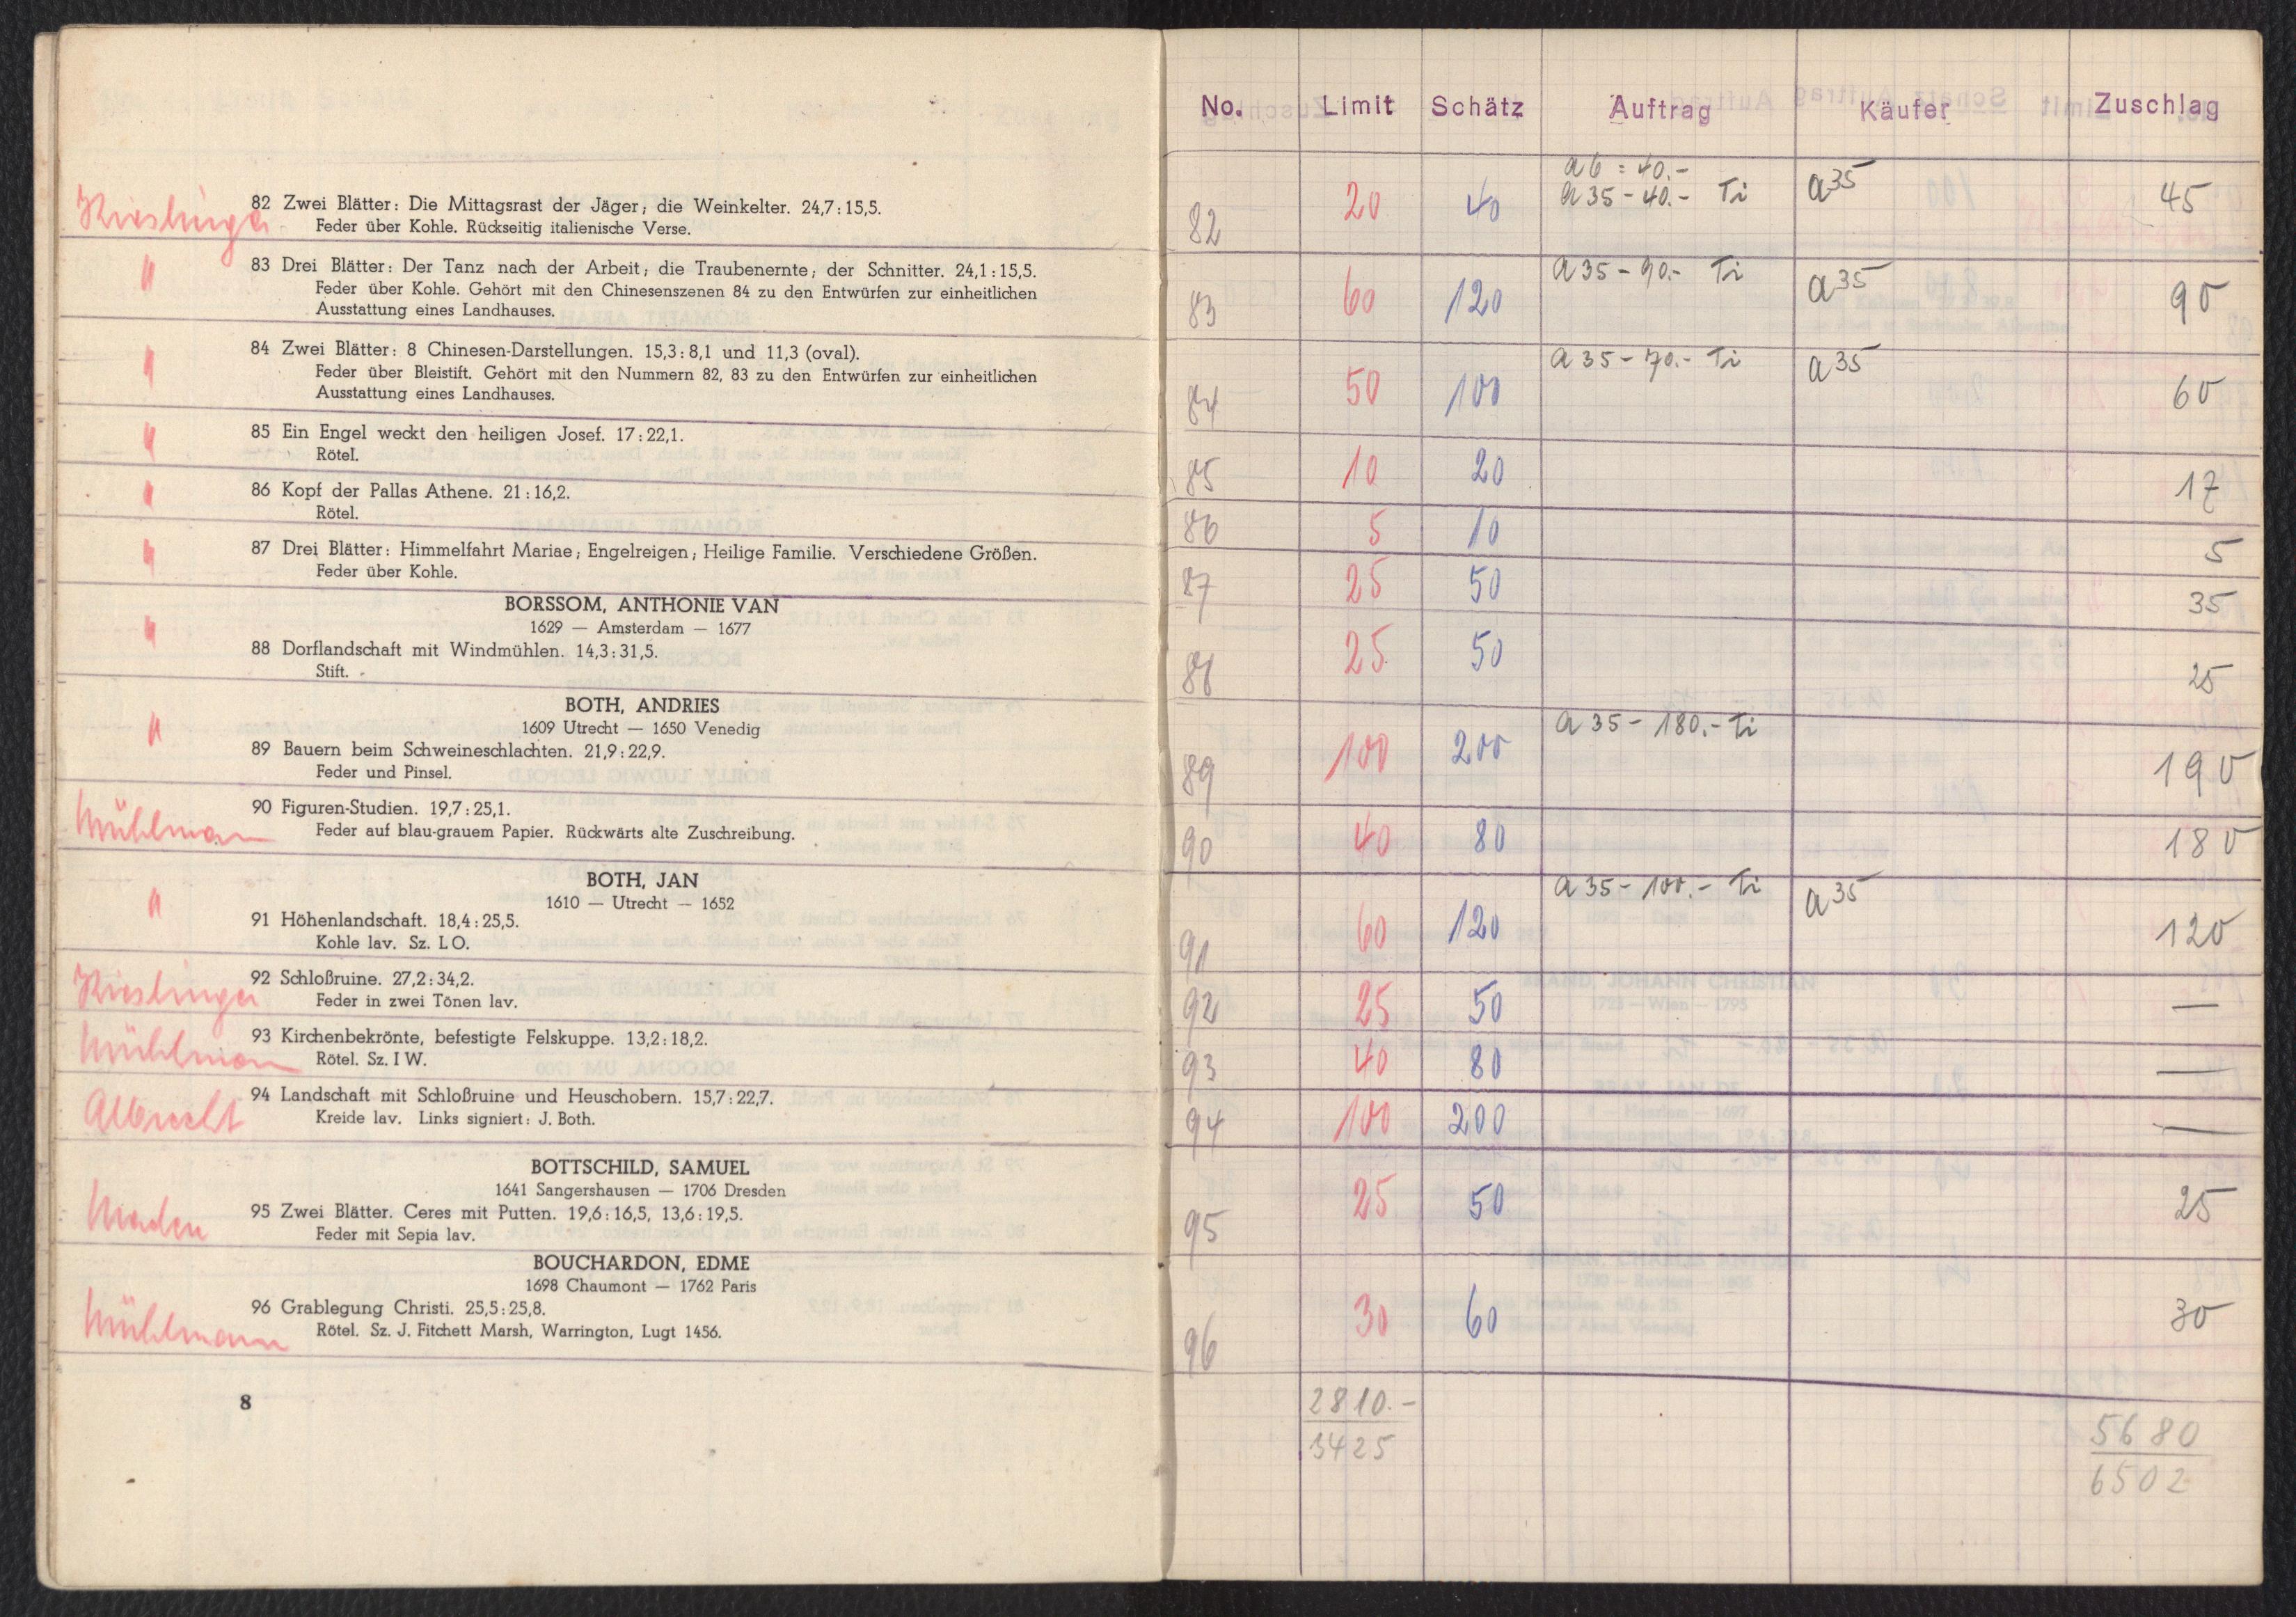 Kieslinger
82 Zwei Blätter: Die Mittagsrast der Jäger; die Weinkelter. 24,7:15,5.
Feder über Kohle. Rückseitig italienische Verse.
"
83 Drei Blätter: Der Tanz nach der Arbeit; die Traubenernte; der Schnitter. 24,1:15,5.
Feder über Kohle. Gehört mit den Chinesenszenen 84 zu den Entwürfen zur einheitlichen
Ausstattung eines Landhauses.
"
84 Zwei Blätter: 8 Chinesen-Darstellungen. 15,3:8,1 und 11,3 (oval).
Feder über Bleistift. Gehört mit den Nummern 82, 83 zu den Entwürfen zur einheitlichen
Ausstattung eines Landhauses.
"
85 Ein Engel weckt den heiligen Josef. 17:22,1.
Rötel.
"
86 Kopf der Pallas Athene. 21:16,2.
Rötel.
"
87 Drei Blätter: Himmelfahrt Mariae; Engelreigen; Heilige Familie. Verschiedene Größen.
Feder über Kohle.
BORSSOM, ANTHONIE VAN
1629 — Amsterdam — 1677
"
88 Dorflandschaft mit Windmühlen. 14,3:31,5.
Stift.
BOTH, ANDRIES
1609 Utrecht — 1650 Venedig
"
89 Bauern beim Schweineschlachten. 21,9:22,9.
Feder und Pinsel.
Mühlmann
90 Figuren-Studien. 19,7:25,1.
Feder auf blau-grauem Papier. Rückwärts alte Zuschreibung.
BOTH, JAN
1610 — Utrecht — 1652
"
91 Höhenlandschaft. 18,4:25,5.
Kohle lav. Sz. L O.
Kieslinger
92 Schloßruine. 27,2:34,2.
Feder in zwei Tönen lav.
Mühlmann
93 Kirchenbekrönte, befestigte Felskuppe. 13,2:18,2.
Rötel. Sz. I W.
Albrecht
94 Landschaft mit Schloßruine und Heuschobern. 15,7:22,7.
Kreide lav. Links signiert: J. Both.
BOTTSCHILD, SAMUEL
1641 Sangershausen — 1706 Dresden
95 Zwei Blätter. Ceres mit Putten. 19,6:16,5, 13,6:19,5.
Feder mit Sepia lav.
BOUCHARDON, EDME
1698 Chaumont — 1762 Paris
Mühlmann
96 Grablegung Christi. 25,5:25,8.
Rötel. Sz. J. Fitchett Marsh, Warrington, Lugt 1456.
8
No. Limit Schätz Auftrag Käufer Zuschlag
a 6 = 40.-
82 20 40 a 35 - 40.- Ti a 35 45
83 60 120 a 35 - 90.- Ti a 35 90
84 50 100 a 35 - 70.- Ti a 35 60
85 10 20 17
86 5 10 5
87 25 50 35
88 25 50 25
89 100 200 a 35 - 180.- Ti 190
90 40 80 180
91 60 120 a 35 - 100.- Ti a 35 120
92 25 50 —
93 40 80 —
94 100 200 —
95 25 50 25
96 30 60 30
2810.- 5680
3425 6502